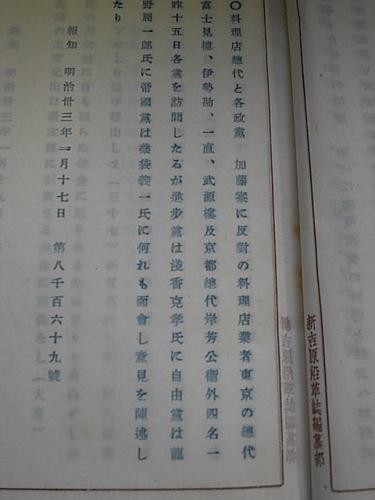 〇料理店總代と各政黨　加藤案に反對の料理店業者東京の總代
富士見樓、伊勢勘、一直、武源樓及京都總代岸芳公衛外四名一
昨十五日各黨を訪問したるが進步黨は淺香克孝氏に自由黨は龍
野周一郎氏に帝國黨は薬袋義一氏に何れも面會し意見を陳述し
たり
報知　明治卅三年一月十七日　第八千百六十九號
新吉原沿革誌編纂部